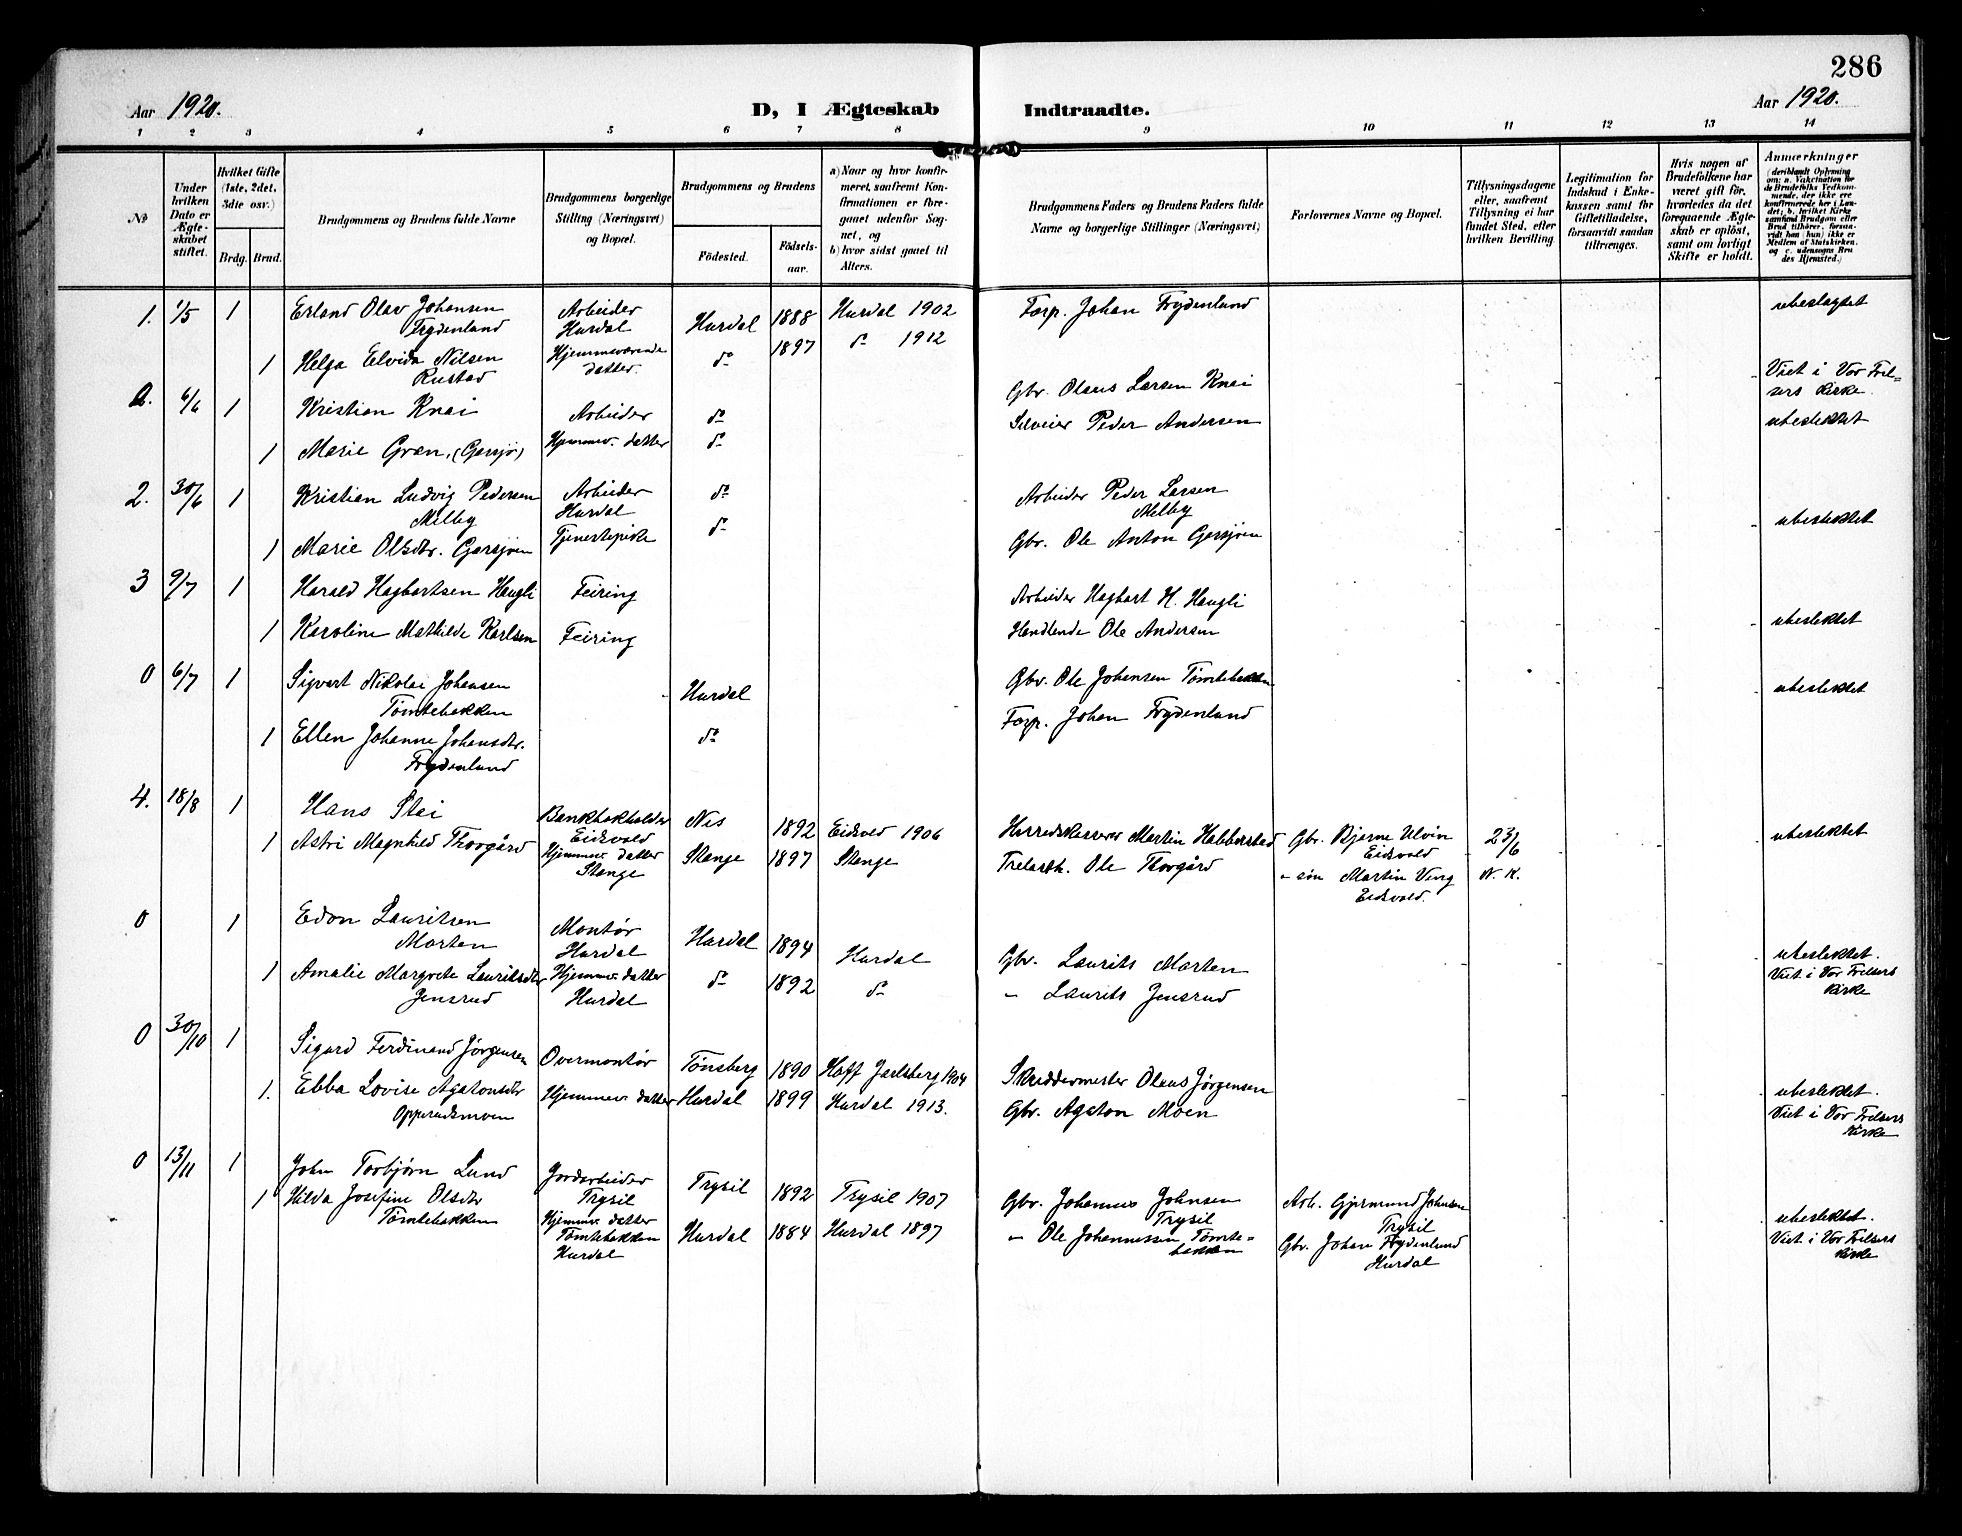 286
Aar 1920.
D, I Ægteskab Indtraadte.
Aar 1920.
1 2 3 4 5 6 7 8 9 10 11 12 13 14
№
Under hvilken Dato er Ægteskabet stiftet.
Hvilket Gifte (1ste, 2det, 3die osv.)
Brdg. Brud.
Brudgommens og Brudens fulde Navne
Brudgommens borgerlige Stilling (Næringsvei) og Bopæl.
Brudgommens og Brudens
Födested.
Födselsaar.
a) Naar og hvor konfirmeret, saafremt Konfirmationen er foregaaet udenfor Sognet, og
b) hvor sidst gaaet til Alters.
Brudgommens Faders og Brudens Faders fulde Navne og borgerlige Stillinger (Næringsvei)
Forlovernes Navne og Bopæl.
Tillysningsdagene eller, saafremt Tillysning ei har fundet Sted, efter hvilken Bevilling.
Legitimation for Indskud i Enkekassen samt for Giftetilladelse, forsaavidt saadan tiltrænges.
Hvis nogen af Brudefolkene har været gift för, hvorledes da det foregaaende Ægteskab er oplöst, samt om lovligt Skifte er holdt.
Anmærkninger
1. 1/5 1 Erland Olav Johansen Arbeider Hurdal 1888 Hurdal 1902 Forp. Johan Frydenlund ubeslagtet
Frydenland Hurdal
1 Helga Elvida Nilsen Hjemmeværende do 1897 do 1912
Rustad datter.
Viet i Vor Frelsers Kirke.
0. 6/6 1 Kristian Knai Arbeider do Gbr. Olaus Larsen Knai
1 Marie Gran, (Garsjø) Hjemmev. datter do Peder Andersen ubeslektet
2. 30/6 1 Kristian Ludvig Pedersen Arbeider do Arbeider Peder Larsen
Milby Hurdal Milby ubeslektet
1 Marie Olsdtr. Garsjøen Tjenestepike do Gbr. Ole Anton Garsjøen
3 9/7 1 Harald Hagbartsen Haugli Feiring Arbeider Hagbart H. Haugli
1 Karoline Mathilde Karlsen Feiring Handlende Ole Andersen ubeslektet
0 6/7 1 Sigvart Nikolai Johansen Hurdal Gbr. Ole Johansen Tømtebakken ubeslektet
Tømtebakken
1 Ellen Johanne Johansdtr. do Forp. Johan Frydenlund
Frydenlund
4. 18/8 1 Hans Stai Bankbokholder Nes 1892 Eidsvold 1906 Herredskasserer Martin Habberstad Gbr. Bjarne Ulvin 23/6 ubeslektet
Eidsvold Eidsvold
1 Astri Magnhild Thorgård Hjemmev. datter Stange 1897 Stange Trelasth. Ole Thorgård " søn Martin Ving N. K.
Stange Eidsvold.
0 1 Edon Lauritsen Montør Hurdal 1894 Hurdal Gbr. Laurits Morten ubeslektet.
Morten Hurdal
1 Amalie Margrete Lauritsdtr Hjemmev. datter do 1892 do " Laurits Jensrud Viet i Vor Frelsers Kirke
Jensrud Hurdal
0 30/10 1 Sigurd Ferdinand Jørgensen Overmontør Tønsberg 1890 Haff Jarlsberg 1904 Skreddermester Olaus Jørgensen ubeslektet.
1. Ebba Lovise Agatonsdtr Hjemmev. datter Hurdal 1899 Hurdal 1913. Gbr. Agaton Moen Viet i Vor Frelsers Kirke
Opperudsmoen
0 13/11 1 John Torbjørn Lund Jordarbeider Trysil 1892 Trysil 1907 Gbr. Johannes Johnsen Arb. Gjermund Johnsen ubeslektet.
Trysil Trysil Trysil
1 Hilda Josefine Olsdtr Hjemmev. datter Hurdal 1884 Hurdal 1897 " Ole Johannessen Tømtebakken Gbr. Johan Frydenlund Viet i Vor Frelsers Kirke
Tømtebakken Tømtebakken Hurdal
Hurdal